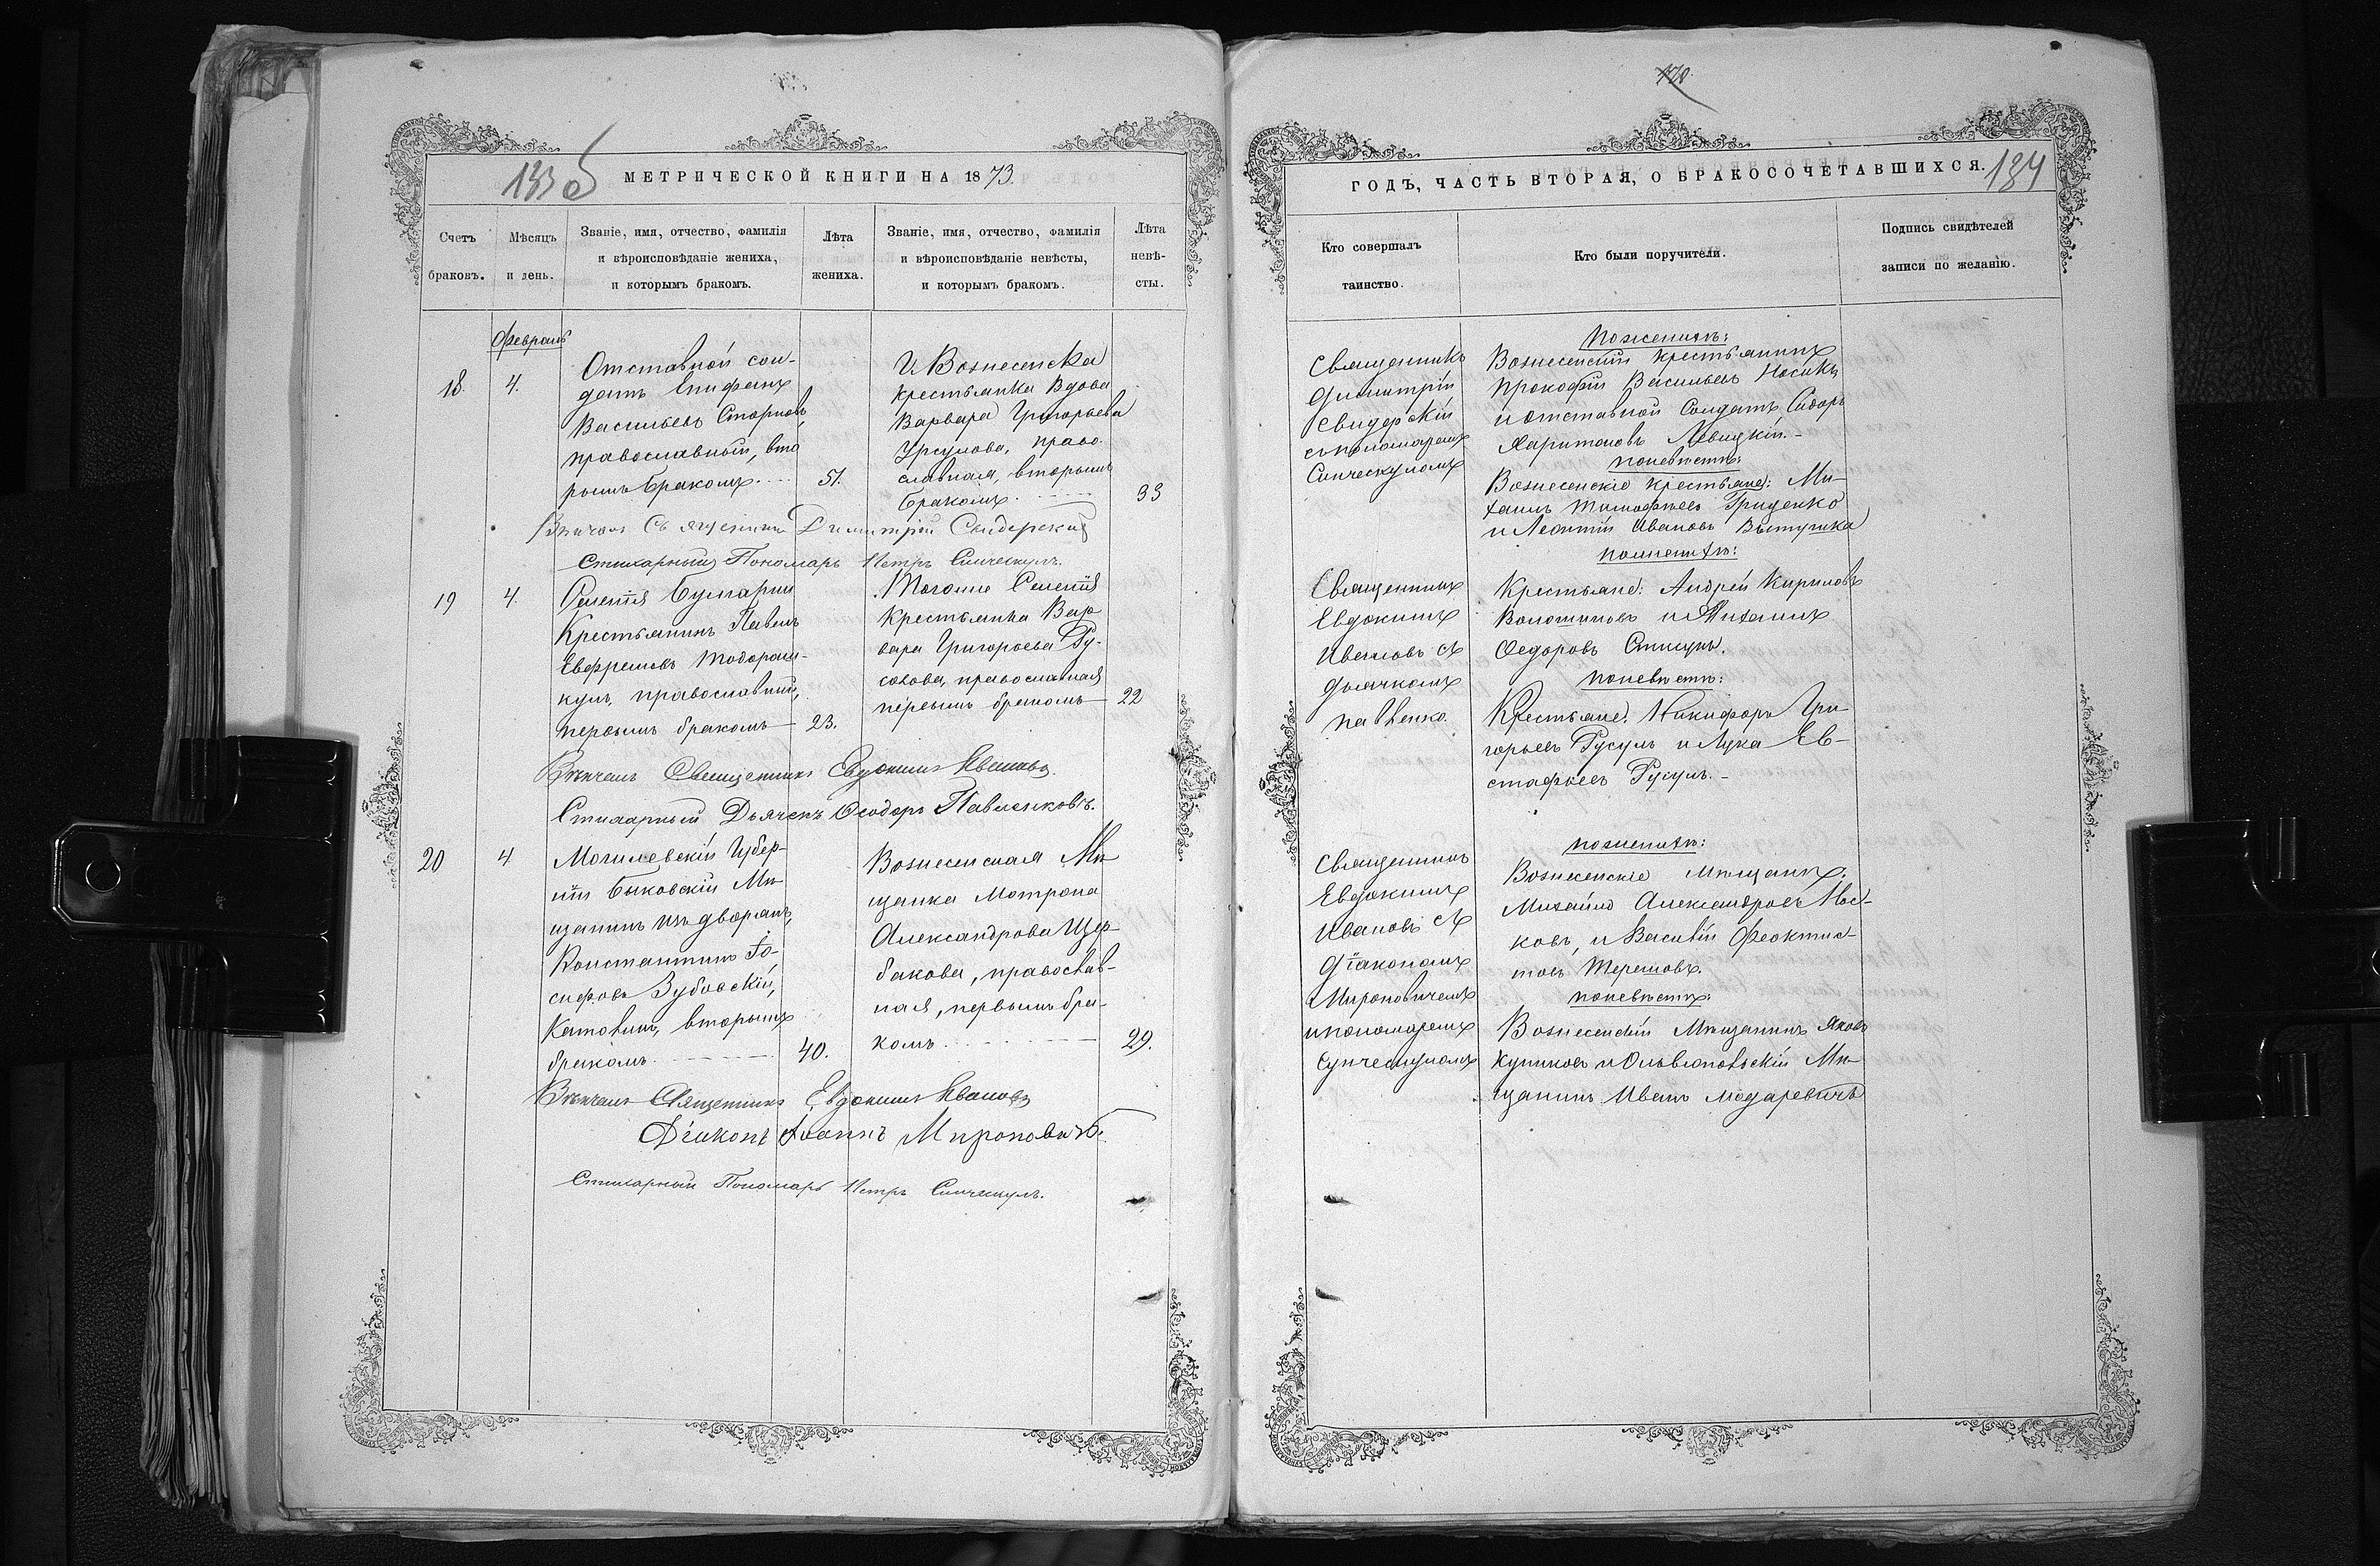 133 об
МЕТРИЧЕСКОЙ КНИГИ НА 1873.
Счетъ
браковъ.
Мѣсяцъ
и день.
Званіе, имя, отчество, фамилія
и вѣроисповѣданіе жениха,
и которымъ бракомъ.
Лѣта
жениха.
Званіе, имя, отчество, фамилія
и вѣроисповѣданіе невѣсты,
и которымъ бракомъ.
Лѣта
невѣ-
сты.
Февраль
18.
4.
Отставной сол-
датъ Епифанъ
Васильевъ
православный, вто
рымъ бракомъ.
51.
Г. Вознесенска
крестьянка вдова
Варвара Григорьева
Урсулова, право-
славная, вторымъ
бракомъ.
33
Вѣнчалъ Священникъ Димитрій Свидерскій
Стихарный Пономарь Петръ Синческулъ.
19
4.
Селенія Булгарки
Крестьянинъ Павелъ
Евфремовъ Тодораш-
кулъ, православный,
первымъ бракомъ
23.
Тогоже Селенія
Крестьянка Вар-
вара Григорьева Ру-
сулова, православная
первымъ бракомъ
22
Вѣнчалъ Священникъ Евдокимъ Ивановъ.
Стихарный Дьячекъ Ѳеодоръ Павленковъ.
20
4
Могилевскій Губер-
ніи Быковскій Мѣ-
щанинъ изъ дворянъ,
Константинъ Іо-
сифовъ Зубовскій,
Католикъ, вторымъ
бракомъ
40.
Вознесенская Мѣ-
щанка Мотрона
Александрова Щер-
бакова, православ-
ная, первымъ бра-
комъ
29.
Вѣнчалъ Священникъ Евдокимъ Ивановъ
Діаконъ Іоаннъ Мироновичъ.
Стихарный Пономарь Петръ Синческулъ.
170
ГОДЪ, ЧАСТЬ ВТОРАЯ, О БРАКОСОЧЕТАВШИХСЯ.
134
Кто совершалъ
таинство.
Кто были поручители.
Подпись свидѣтелей
записи по желанію.
Священникъ
Димитрій
Свидерскій
съ пономаремъ
Синческуломъ
по женихѣ:
Вознесенскій крестьянинъ
Прокофій Васильевъ Носикъ
и отставной Солдатъ Сидоръ
Харитоновъ Левицкій.-
по невѣстѣ:
Вознесенскіе крестьяне: Ми-
хаилъ Тимофѣевъ Гриценко
и Леонтій Ивановъ
по женихѣ:
Священникъ
Евдокимъ
Ивановъ съ
дьячкомъ
Павленко.
Крестьяне: Андрей Кириловъ
Волошиновъ и Михаилъ
Ѳедоровъ
по невѣстѣ:
Крестьяне: Никифоръ Гри-
горьевъ Русулъ и Лука Ев-
стафьевъ Русулъ.-
Священникъ
Евдокимъ
Ивановъ съ
Діакономъ
Мироновичемъ
и пономаремъ
Синческуломъ
по женихѣ:
Вознесенскіе Мѣщане:
Михайло Александровъ Мос-
ковъ, и Василій Феоктис-
товъ Терешовъ.
по невѣстѣ:
Вознесенскій Мѣщанинъ Яковъ
Куликовъ и Ольвіопольскій Мѣ-
щанинъ Иванъ Модаревичъ